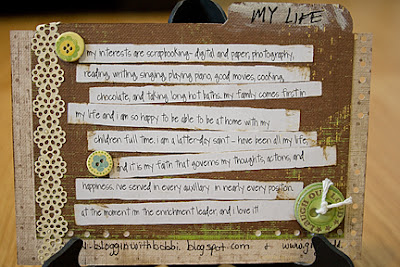 MY LIFE
my interests are scrapbooking- digital and paper, photography,
reading, writing, singing, playing piano, good movies, cooking,
chocolate, and taking long hot baths. my family comes first in
my life and i am so happy to be able to be at home with my
children full time. i am a latter-day saint - have been all my life
and it is my faith that governs my thoughts, actions, and
happiness. i've served in every auxiliary in nearly every position.
at the moment i'm the enrichment leader, and i love it!
bloggin with bobbi. blogspot.com